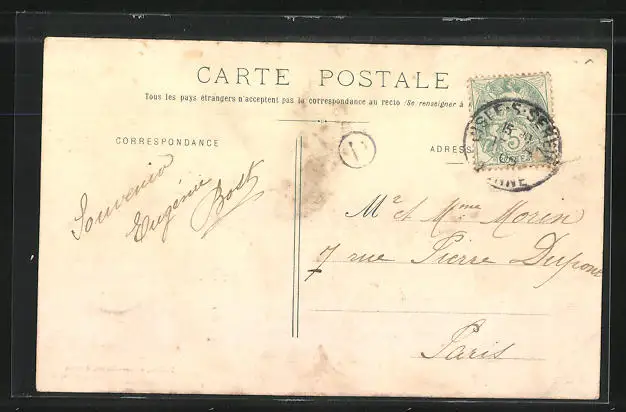 CARTE POSTALE
Tous les pays étrangers n'acceptent pas la correspondance au recto (Se renseigner à
CORRESPONDANCE
ADRESS
Souvenir
Eugénie
Bost
Mr et Mme Morin
7 rue Pierre Dupont
Paris